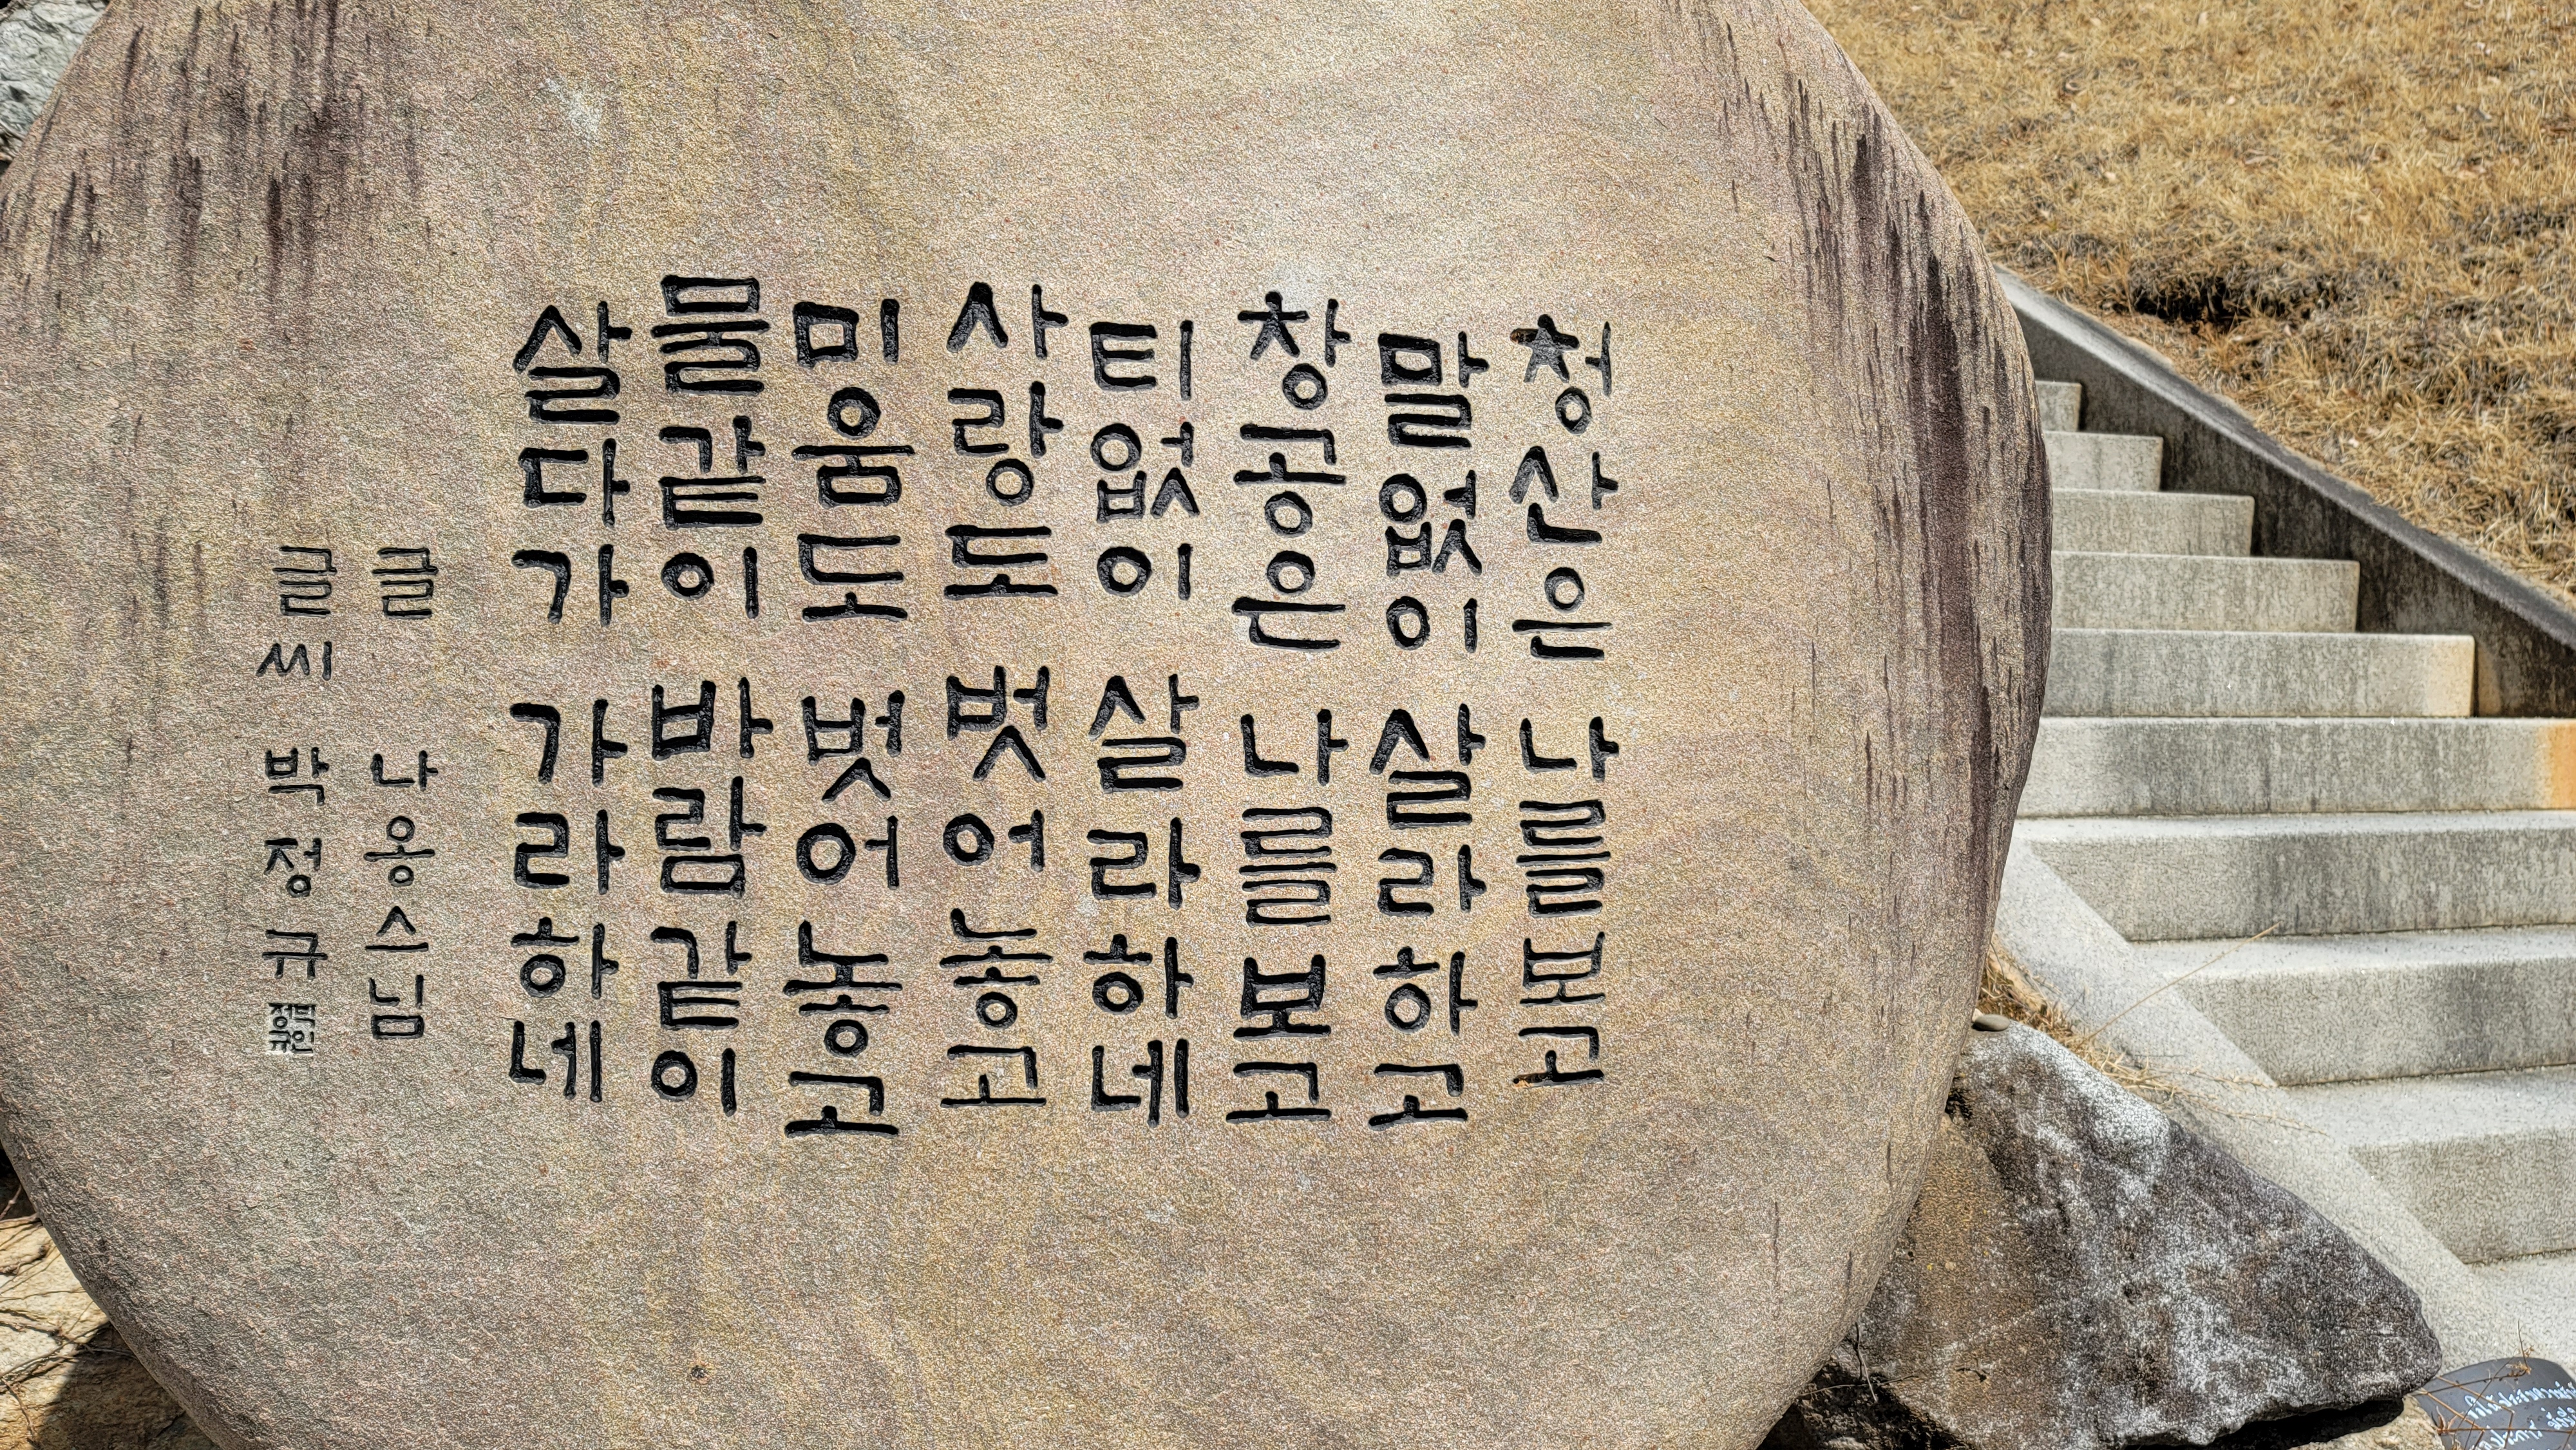 청산은 나를보고
말없이 살라하고
창공은 나를보고
티없이 살라하네
사랑도 벗어놓고
미움도 벗어놓고
물같이 바람같이
살다가 가라하네
글 나옹스님
글씨 박정규